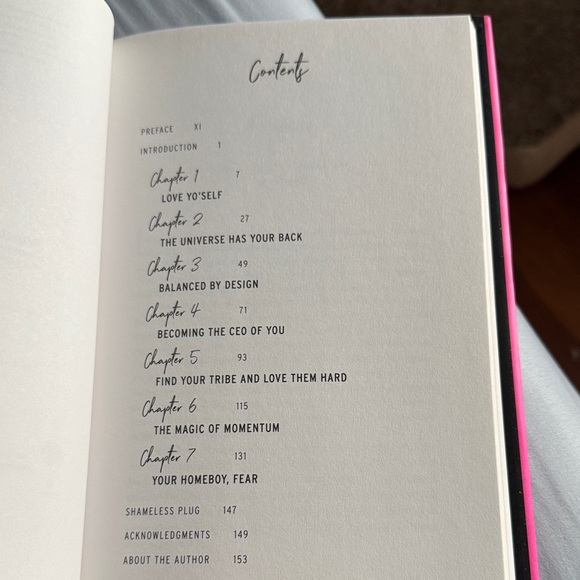 Contents
PREFACE XI
INTRODUCTION 1
Chapter 1 7
LOVE YO'SELF
Chapter 2 27
THE UNIVERSE HAS YOUR BACK
Chapter 3 49
BALANCED BY DESIGN
Chapter 4 71
BECOMING THE CEO OF YOU
Chapter 5 93
FIND YOUR TRIBE AND LOVE THEM HARD
Chapter 6 115
THE MAGIC OF MOMENTUM
Chapter 7 131
YOUR HOMEBOY, FEAR
SHAMELESS PLUG 147
ACKNOWLEDGMENTS 149
ABOUT THE AUTHOR 153